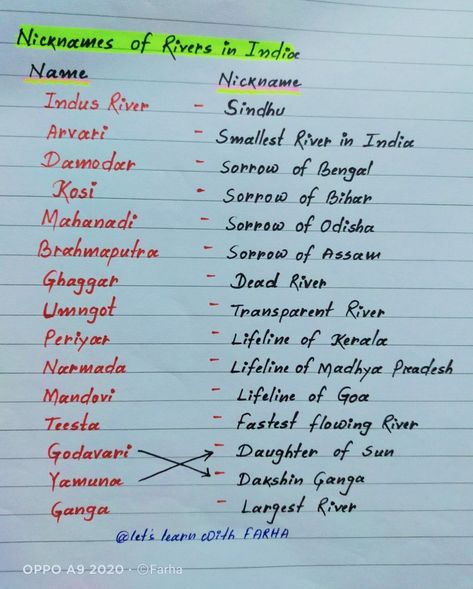 Nicknames of Rivers in India
Name Nickname
Indus River - Sindhu
Arvari - Smallest River in India
Damodar - Sorrow of Bengal
Kosi - Sorrow of Bihar
Mahanadi - Sorrow of Odisha
Brahmaputra - Sorrow of Assam
Ghaggar - Dead River
Umngot - Transparent River
Periyar - Lifeline of Kerala
Narmada - Lifeline of Madhya Pradesh
Mandovi - Lifeline of Goa
Teesta - Fastest flowing River
Godavari - Daughter of Sun
Yamuna - Dakshin Ganga
Ganga - Largest River
@let's learn with FARHA
OPPO A9 2020 · ©Farha